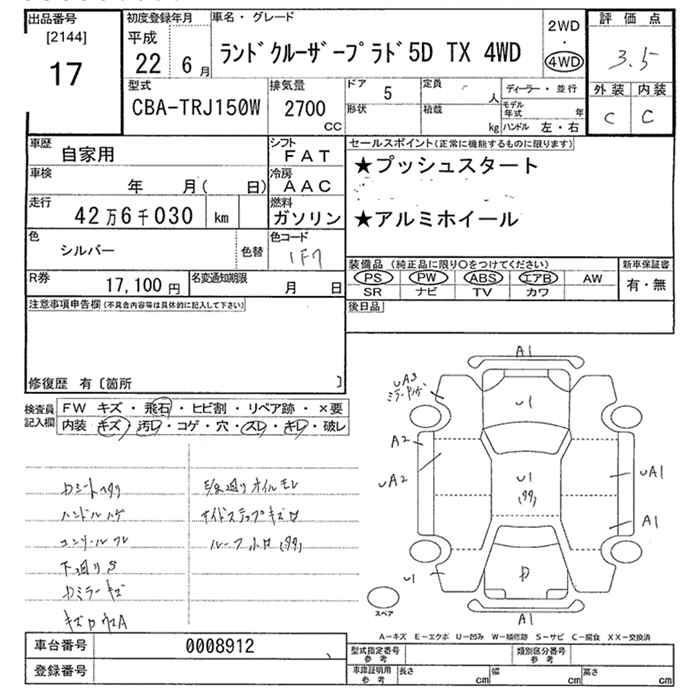 出品番号
[2144]
17
初度登録年月
平成
22 6 月
車名・グレード
ランドクルーザープラド5D TX 4WD
2WD
・
4WD
評価点
3.5
外装 内装
C C
型式
CBA-TRJ150W
排気量
2700
CC
ドア
5
形状
定員
人
積載
kg
ディーラー・並行
モデル年式 年
ハンドル 左・右
車歴
自家用
シフト
FAT
車検
年 月( 日)
冷房
AAC
走行
42万6千030 km
燃料
ガソリン
色
シルバー
色替
色コード
1F7
R券
17,100 円
名変通知期限
月 日
セールスポイント(正常に機能するものに限ります)
★プッシュスタート
★アルミホイール
装備品 (純正品に限り〇をつけてください)
PS PW ABS エアB AW
SR ナビ TV カワ
新車保証書
有・無
後日品
注意事項申告欄(不具合内容等は具体的に記入して下さい)
修復歴 有〔箇所 〕
検査員
記入欄
FW キズ・飛石・ヒビ割・リペア跡・×要
内装 キズ・汚レ・コゲ・穴・スレ・キレ・破レ
ハンドルハゲ
下廻りS
オイルモレ
A1
UA3
U1
A2
UA2
U1
(99)
UA1
A1
U1
A1
スペア
A-キズ E-エクボ U-凹み W-補修跡 S-サビ C-腐食 XX-交換済
車台番号
0008912
登録番号
型式指定番号
参考
類別区分番号
参考
車庫証明用
参考
長さ cm
幅 cm
高さ cm